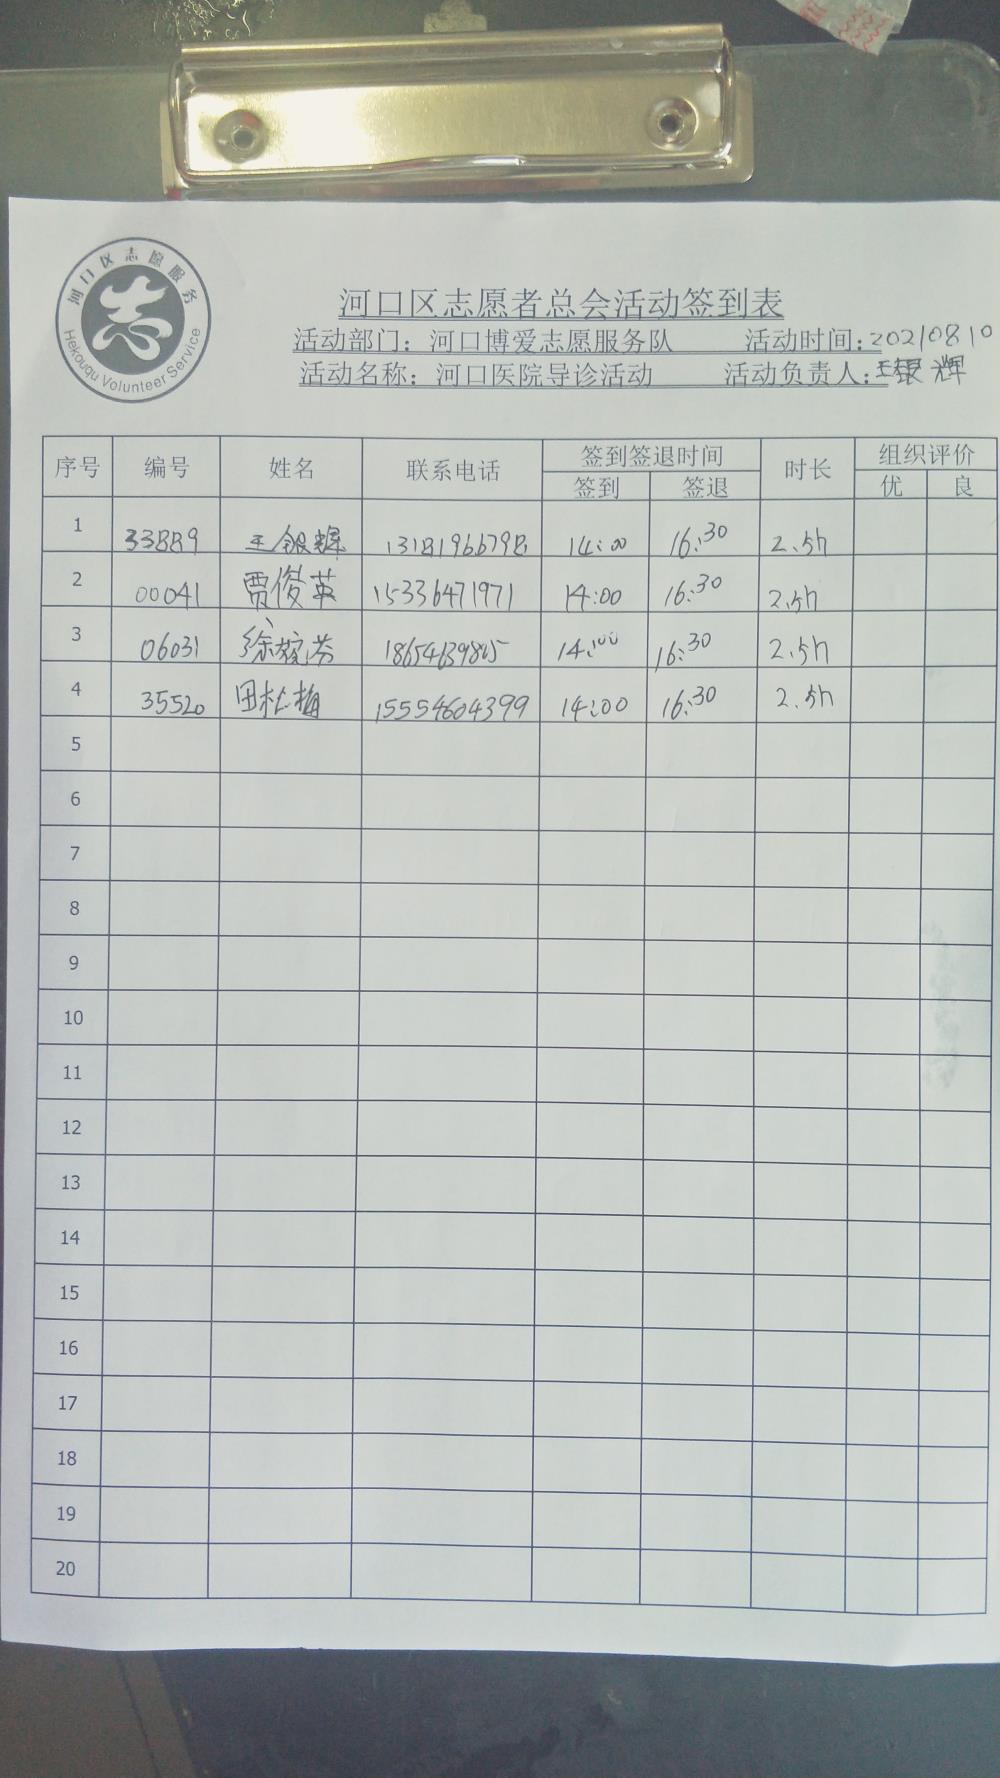 河口区志愿服务
Hekouqu Volunteer Service
河口区志愿者总会活动签到表
活动部门：河口博爱志愿服务队 活动时间：20210810
活动名称：河口医院导诊活动 活动负责人：王银辉
序号 编号 姓名 联系电话 签到签退时间 时长 组织评价
签到 签退 优 良
1 33889 王银辉 13181966798 14:00 16:30 2.5h
2 00041 贾俊英 15336471971 14:00 16:30 2.5h
3 06031 徐 芬 14:00 16:30 2.5h
4 35520 田杜梅 15554604399 14:00 16:30 2.5h
5
6
7
8
9
10
11
12
13
14
15
16
17
18
19
20